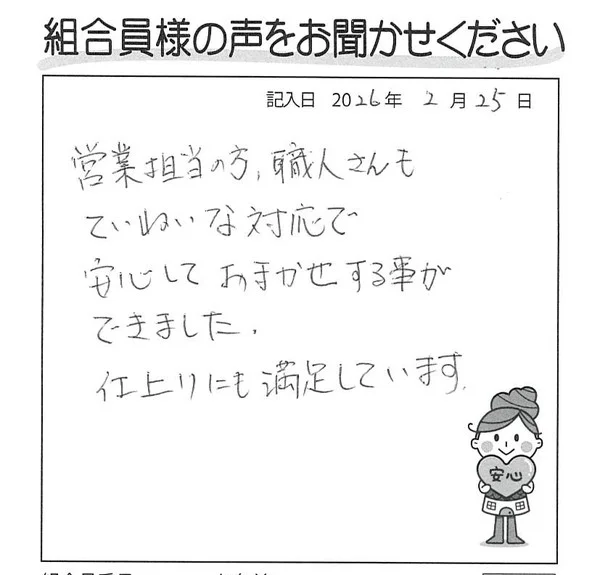 組合員様の声をお聞かせください
記入日 2026年 2月25日
営業担当の方、職人さんも
ていねいな対応で
安心しておまかせする事が
できました。
仕上りにも満足しています。
安心